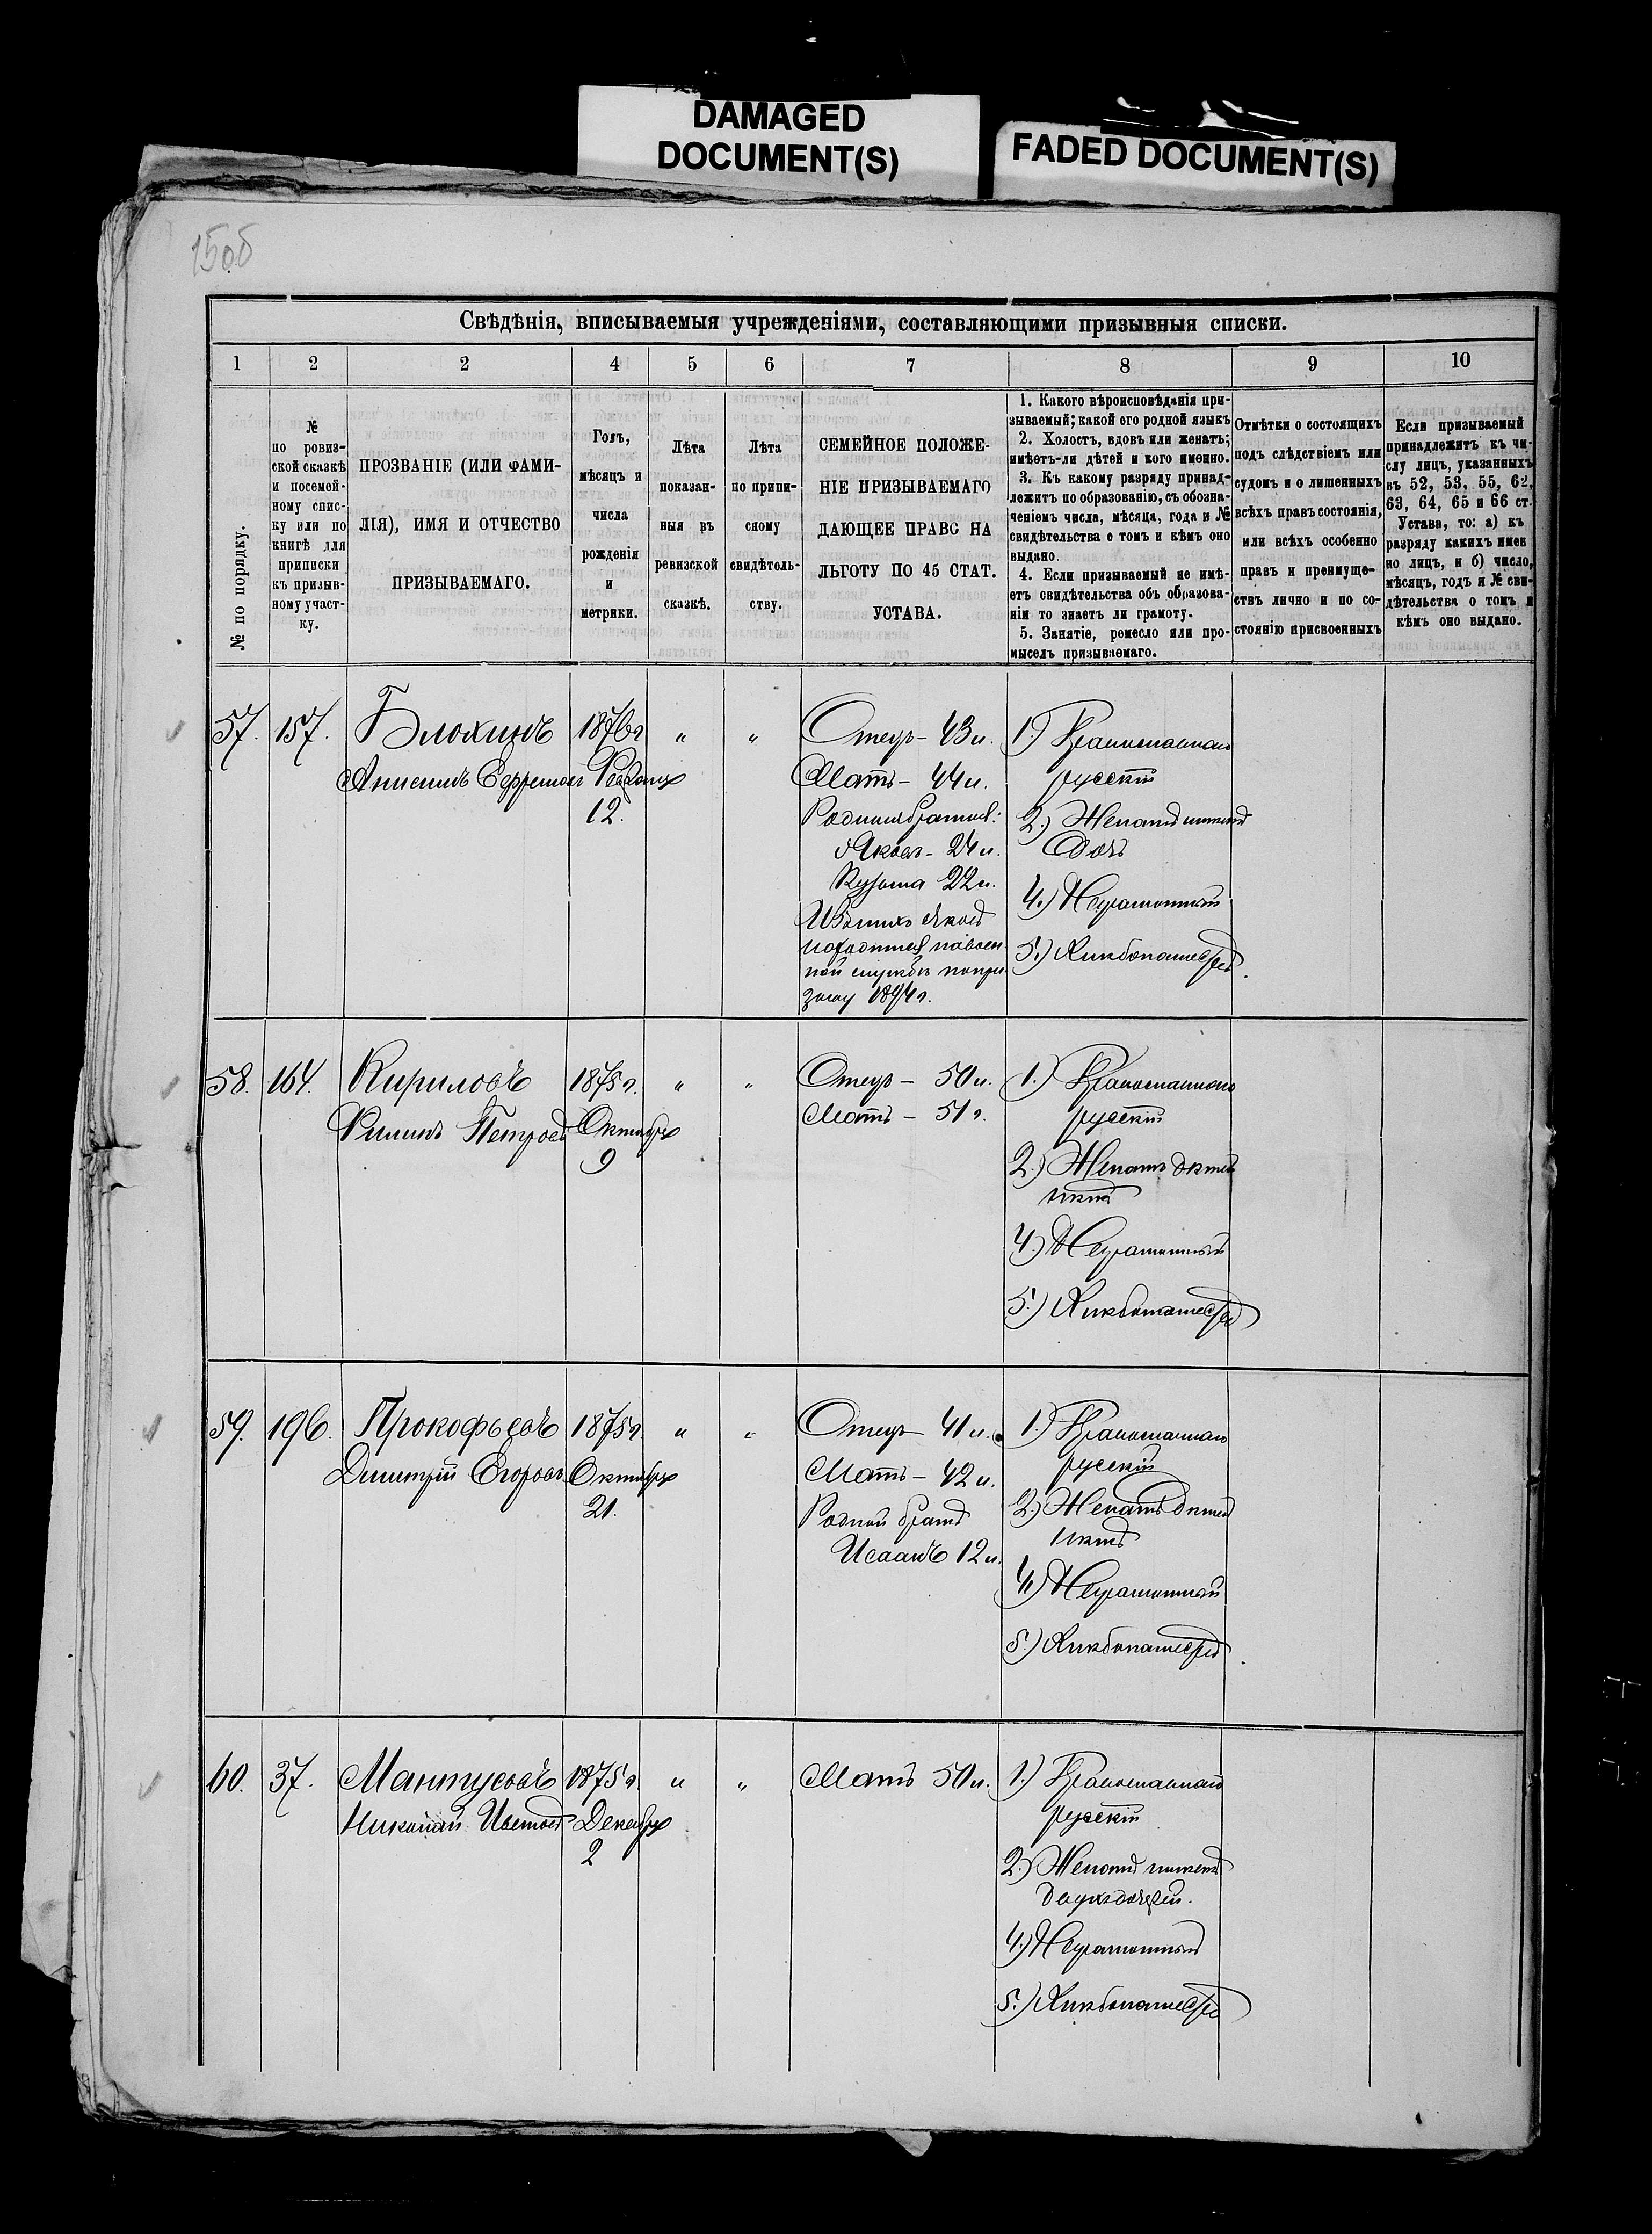 DAMAGED
DOCUMENT(S)
FADED DOCUMENT(S)
150б
Свѣдѣнія, вписываемыя учрежденіями, составляющими призывныя списки.
1 2 2 4 5 6 7 8 9 10
№ по порядку.
№
по ровиз-
ской сказкѣ
и посемей-
ному спис-
ку или по
книгѣ для
приписки
къ призыв-
ному участ-
ку.
ПРОЗВАНІЕ (ИЛИ ФАМИ-
ЛІЯ), ИМЯ И ОТЧЕСТВО
ПРИЗЫВАЕМАГО.
Годъ,
мѣсяцъ и
числа
рожденія
и
метрики.
Лѣта
показан-
ныя въ
ревизской
сказкѣ.
Лѣта
по припи-
сному
свидѣтель-
ству.
СЕМЕЙНОЕ ПОЛОЖЕ-
НІЕ ПРИЗЫВАЕМАГО
ДАЮЩЕЕ ПРАВО НА
ЛЬГОТУ ПО 45 СТАТ.
УСТАВА.
1. Какого вѣроисповѣданія при-
зываемый; какой его родной языкъ
2. Холостъ, вдовъ или женатъ;
имѣетъ-ли дѣтей и кого именно.
3. Къ какому разряду принад-
лежитъ по образованію, съ обозна-
ченіемъ числа, мѣсяца, года и №
свидѣтельства о томъ и кѣмъ оно
выдано.
4. Если призываемый не имѣ-
етъ свидѣтельства объ образова-
ніи то знаетъ ли грамоту.
5. Занятіе, ремесло или про-
мыселъ призываемаго.
Отмѣтки о состоящихъ
подъ слѣдствіемъ или
судомъ и о лишенныхъ
всѣхъ правъ состоянія,
или всѣхъ особенно
правъ и преимуще-
ствъ лично и по со-
стоянію присвоенныхъ
Если призываемый
принадлежитъ къ чи-
слу лицъ, указанныхъ
въ 52, 53, 55, 62,
63, 64, 65 и 66 ст.
Устава, то: а) къ
разряду какихъ имен
но лицъ, и б) число,
мѣсяцъ, годъ и № сви-
дѣтельства о томъ и
кѣмъ оно выдано.
57. 157. Блохинъ 1876г " "
Анисимъ Ефремовъ
12.
Отецъ - 43 л.
Мать - 44 л.
Родныя братья:
Яковъ - 24 л.
Кузьма 22 л.
Изъ нихъ Яковъ
находится на воен-
ной службѣ по при-
зыву 1894г.
1.) Православнаго
русскій
2.) Женатъ имѣетъ
дочь
4.) Неграмотный
5.) Хлѣбопашество
58. 164. Кириловъ 1875г. " "
Филипъ Петровъ Октября
9
Отецъ - 50 л.
Мать - 51 г.
1.) Православнаго
русскій
2.) Женатъ дѣтей
нѣтъ
4.) Неграмотный
5.) Хлѣбопашество
59. 196. Прокофьевъ 1875г. " "
Дмитрій Егоровъ Октября
21.
Отецъ 41 л.
Мать - 42 л.
Родной братъ
Исаакъ 12 л.
1.) Православнаго
русскій
2.) Женатъ дѣтей
нѣтъ
4.) Неграмотный
5.) Хлѣбопашество
60. 37. Мантусовъ 1875г " "
Николай Декабря
2
Мать 50 л.
1.) Православнаго
русскій
2.) Женатъ имѣетъ
двухъ дочерей.
4.) Неграмотный
5.) Хлѣбопашество